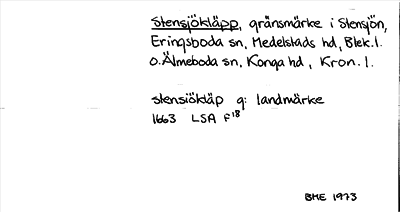 Stensjökläpp, gränsmärke i Stensjön,
Eringsboda sn, Medelstads hd, Blek.l.
o. Älmeboda sn, Konga hd, Kron. l.
stensiökläp q: landmärke
1663 LSA F18
BHE 1973